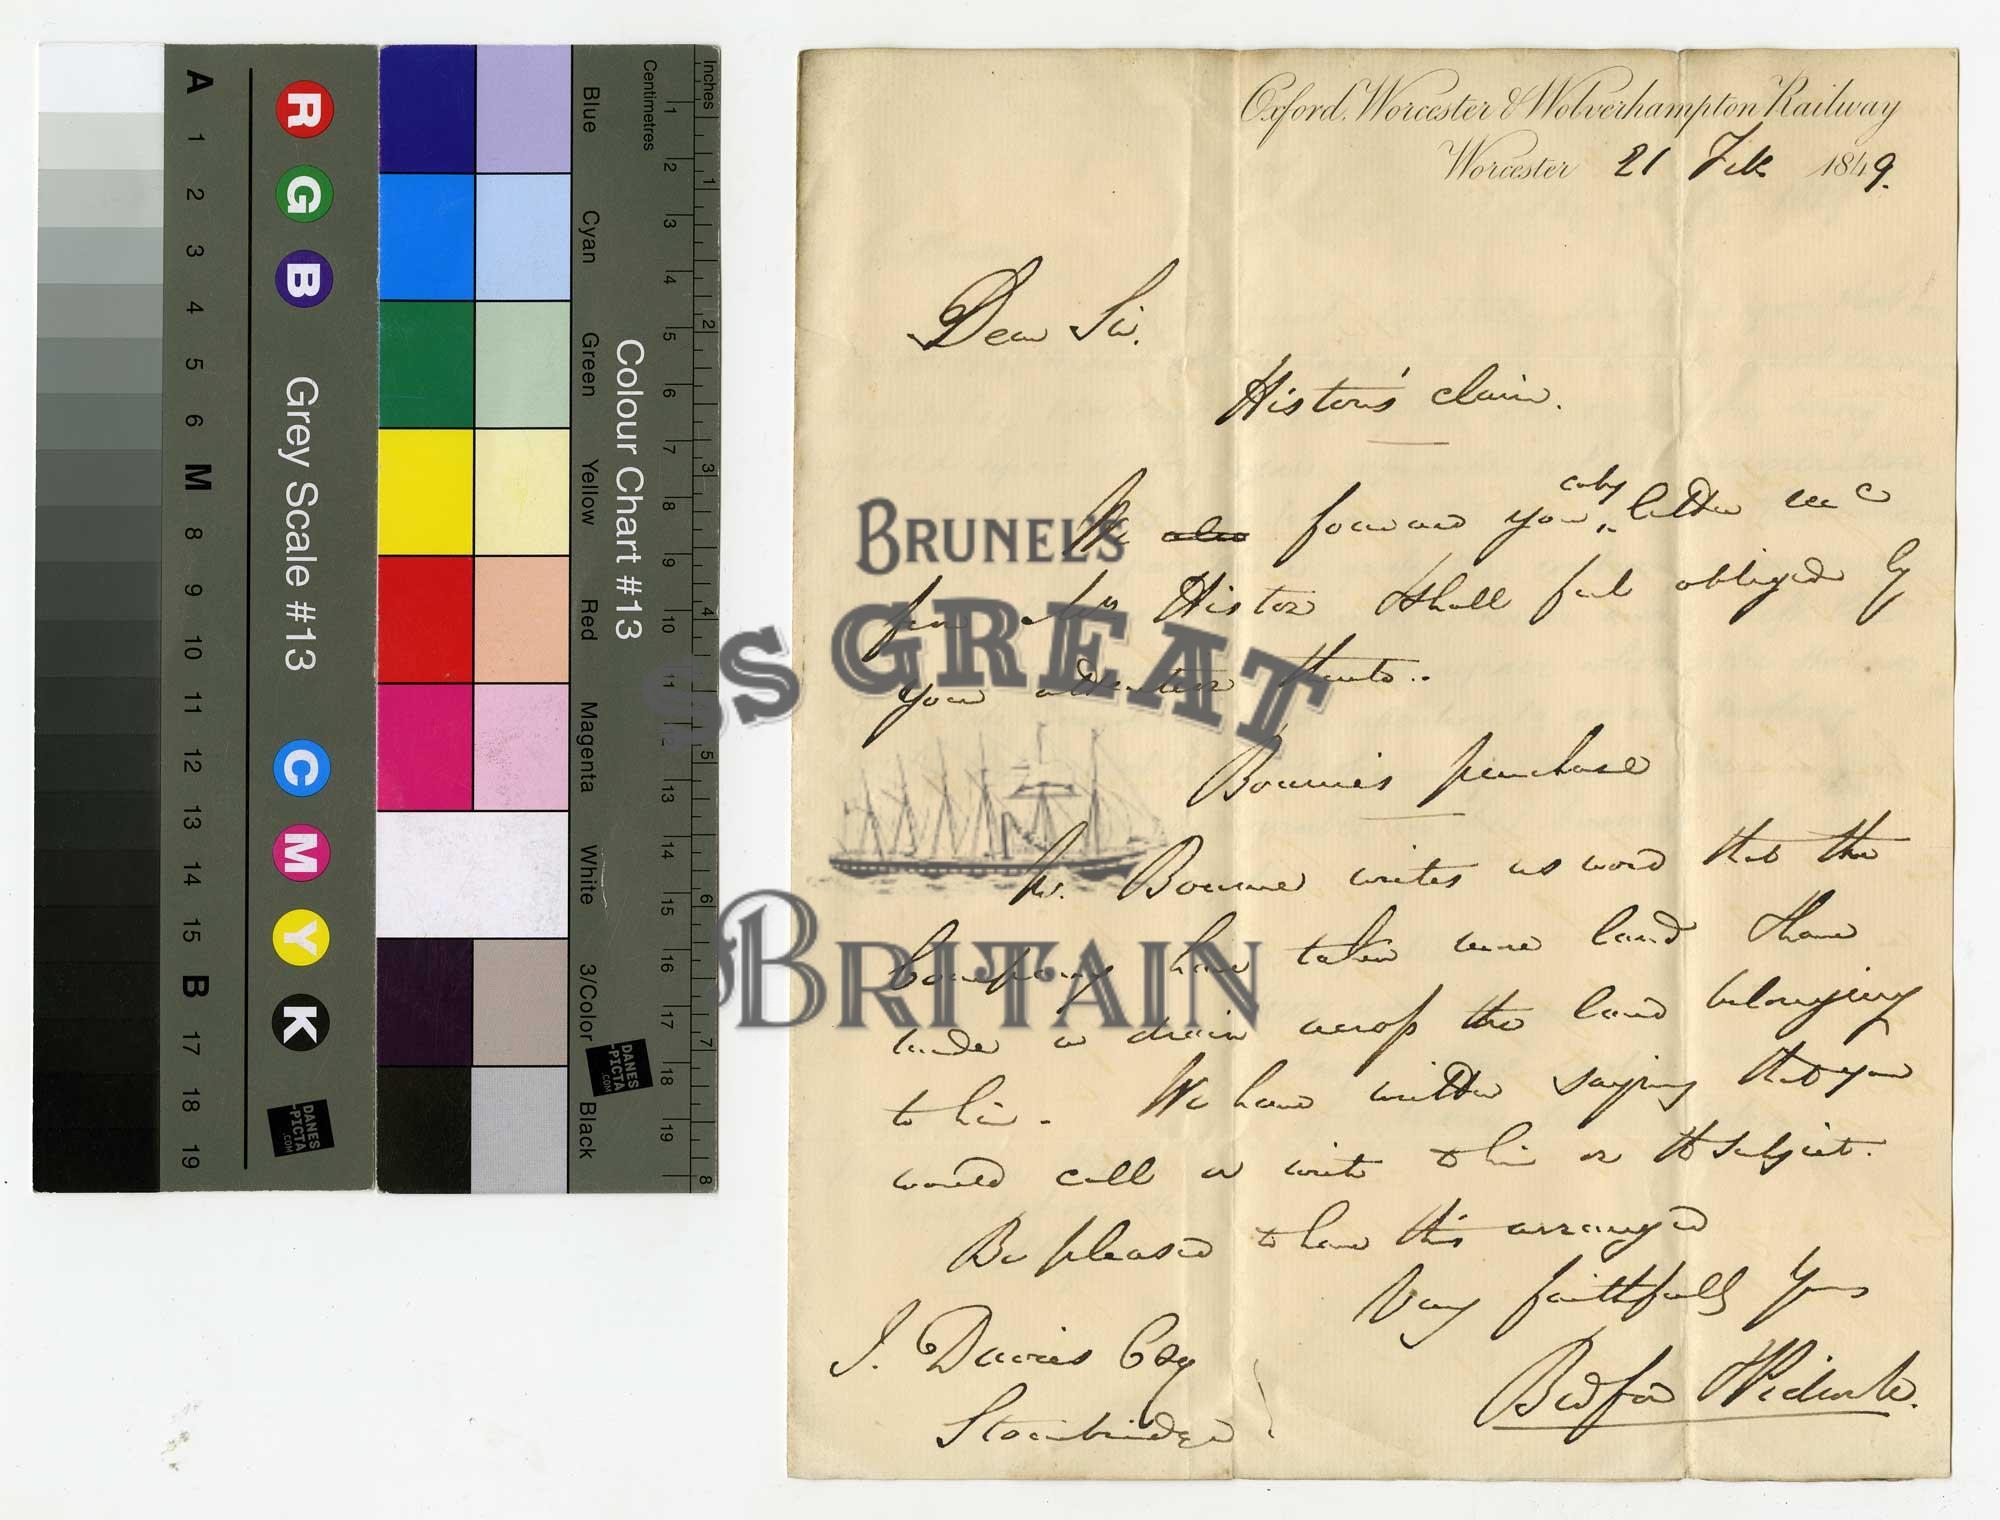 A
1
2
3
4
5
6
M
8
9
10
11
12
13
14
15
B
17
18
19
R
G
B
Grey Scale #13
C
M
Y
K
DANES
-PICTA
.COM
Blue
Cyan
Green
Yellow
Red
Magenta
White
3/Color
Black
Colour Chart #13
DANES
-PICTA
.COM
Centimetres
1
2
3
4
5
6
7
8
9
10
11
12
13
14
15
16
17
18
19
Inches
1
2
3
4
5
6
7
8
Oxford, Worcester & Wolverhampton Railway
Worcester 21 Feb 1849.
Dear Sir.
Histons' claim.
We also forward you copy letter recd
from Mr Histon & shall feel obliged by
your attention thereto..
Bourne's purchase
Mr. Bourne writes us word that the
Company have taken more land & have
made a drain across the land belonging
to him. We have written saying that you
would call or write to him on the subject.
Be pleased to have this arranged
Very faithfully Yours
Bedford & Pidcock.
J. Davies Esq
Stourbridge
BRUNEL'S
SS GREAT
BRITAIN